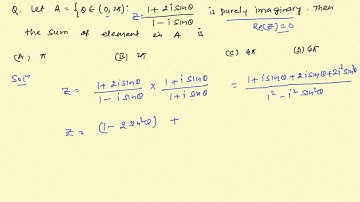 Q. Let A = {θ ∈ (0, 2π): z = (1 + 2i sinθ)/(1 - i sinθ) is purely imaginary. Then Re(z) = 0
the sum of element in A is
(A) π (B) 2π (C) 3π (D) 4π
Solⁿ
z = (1 + 2i sinθ)/(1 - i sinθ) × (1 + i sinθ)/(1 + i sinθ) = (1 + i sinθ + 2i sinθ + 2i² sin²θ)/(i² - i² sin²θ)
z = (1 - 2 sin²θ) +